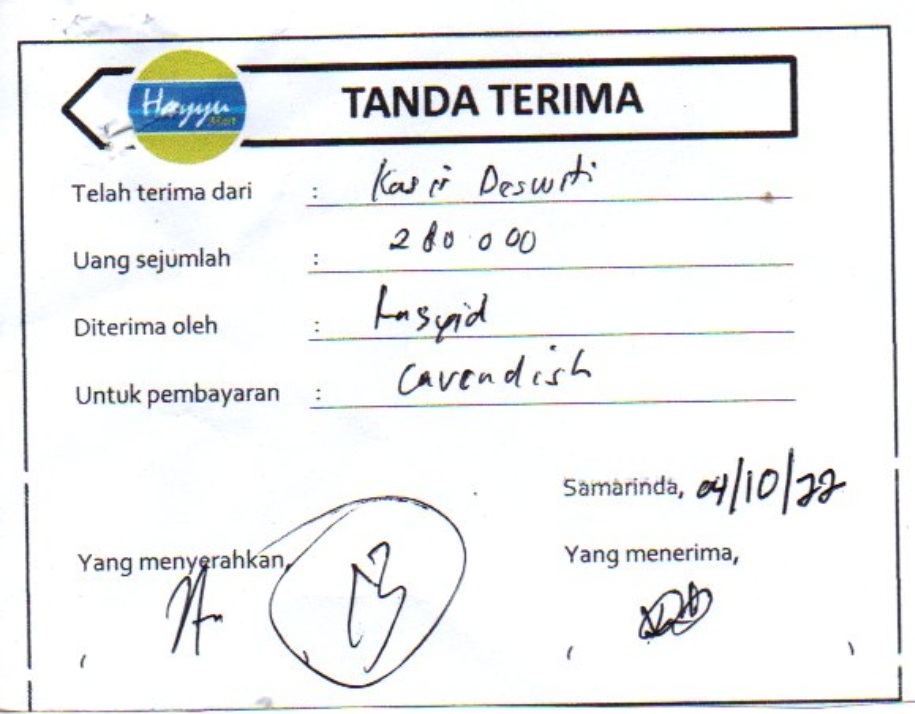 Hayyu Mart
TANDA TERIMA
Telah terima dari : Kasir Deswiti
Uang sejumlah : 280.000
Diterima oleh : Rasyid
Untuk pembayaran : Cavendish
Samarinda, 04/10/22
Yang menyerahkan,
Yang menerima,
( )
( )